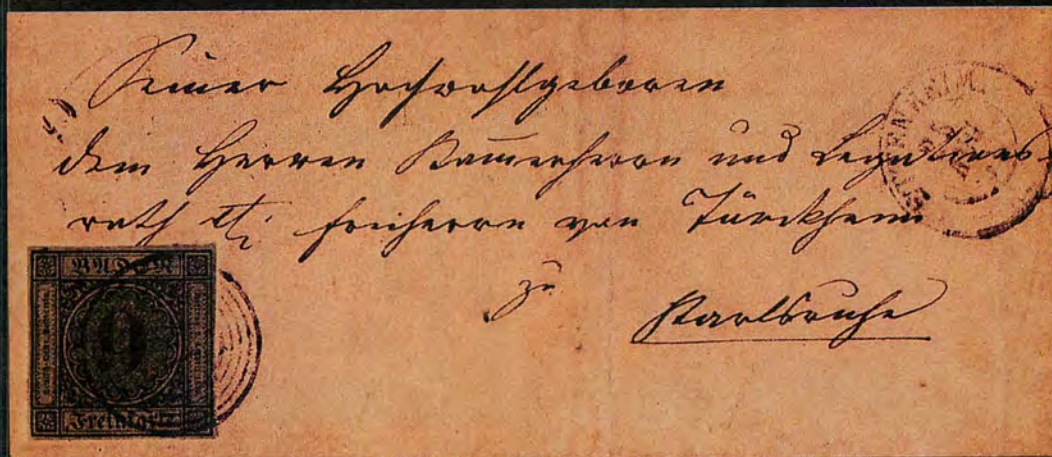 Seiner Hochwohlgeboren
dem Herren Kam̄erherrn und Legations-
rath v/i Freiherrn von Türckheim
zu
Karlsruhe
ETTENHEIM
BADEN
9
Freimarke